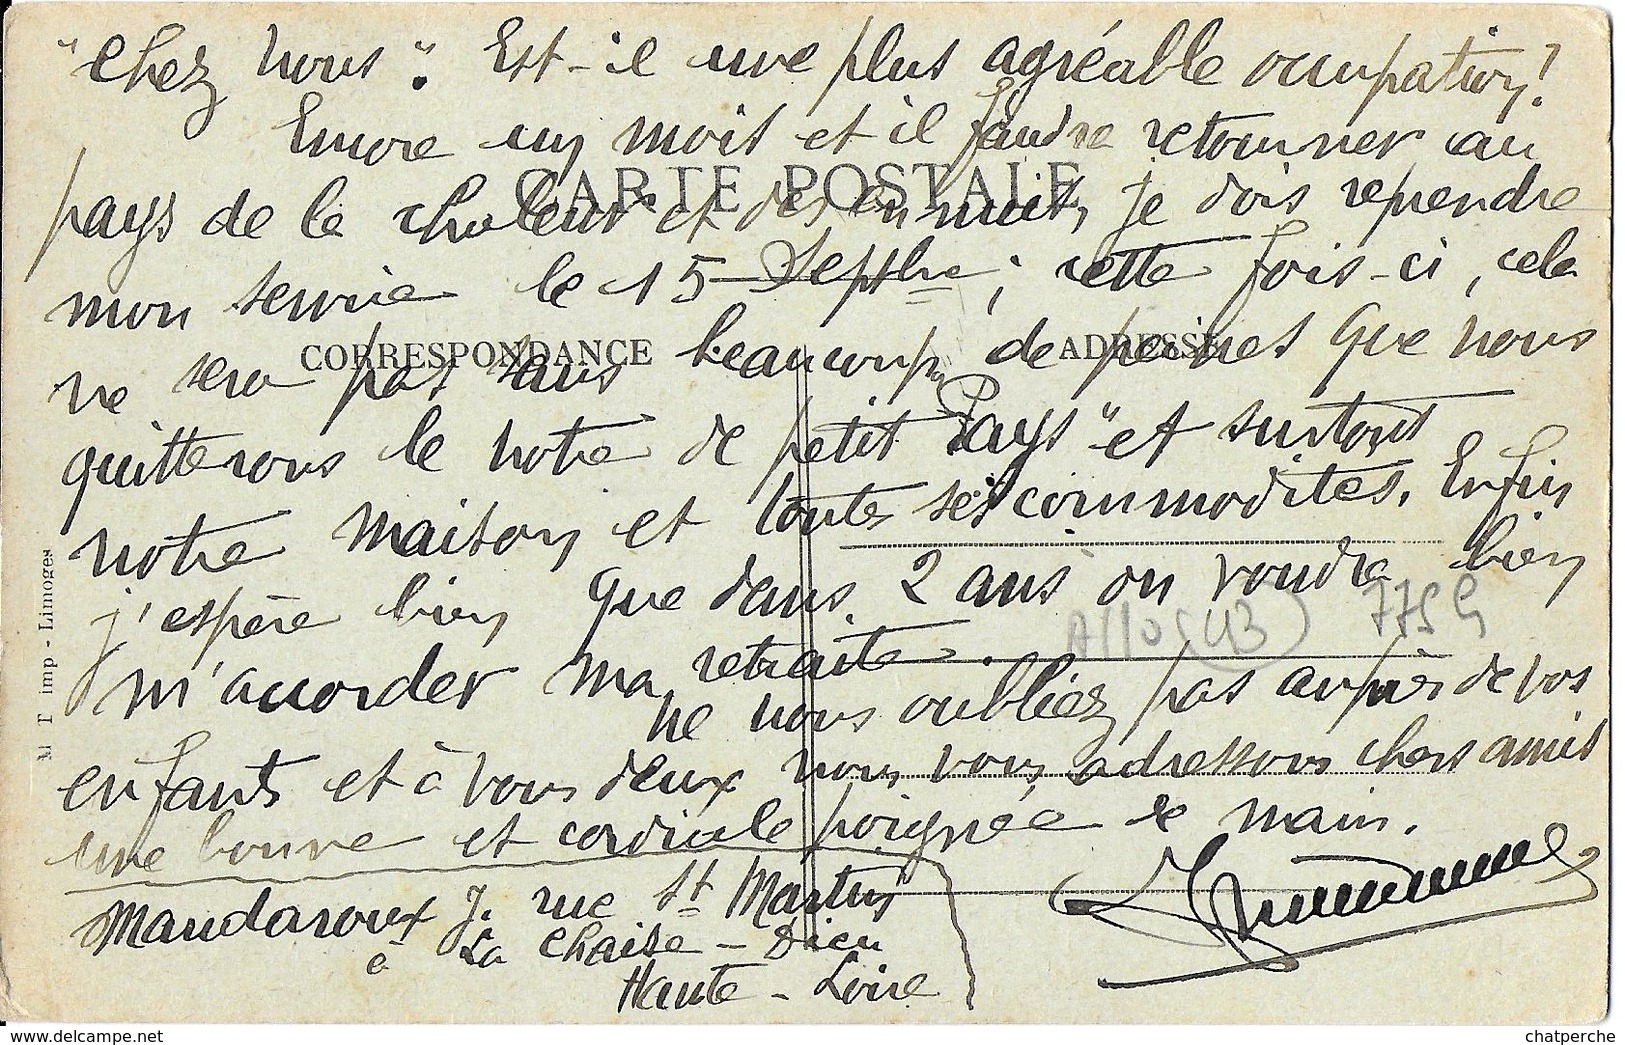 "Chez nous". Est-il une plus agréable occupation!
Encore un mois et il faudra retourner au
CARTE POSTALE
pays de la chaleur et des ennuis, je dois reprendre
mon service le 15 Septbre; cette fois-ci, cela
CORRESPONDANCE ADRESSE
ne sera pas sans beaucoup de peines que nous
quitterons le notre de petit Pays" et surtout
notre maison et toutes ses commodités. Enfin
j'espère bien que dans 2 ans on voudra bien
Allo (43) 775G
m'accorder ma retraite.
ne nous oubliez pas auprès de vos
enfants et à vous deux nous vous adressons chers amis
une bonne et cordiale poignée de main.
Mandaroux J. rue St Martin
à La Chaise-Dieu
Haute-Loire
M T imp - Limoges
chatperche